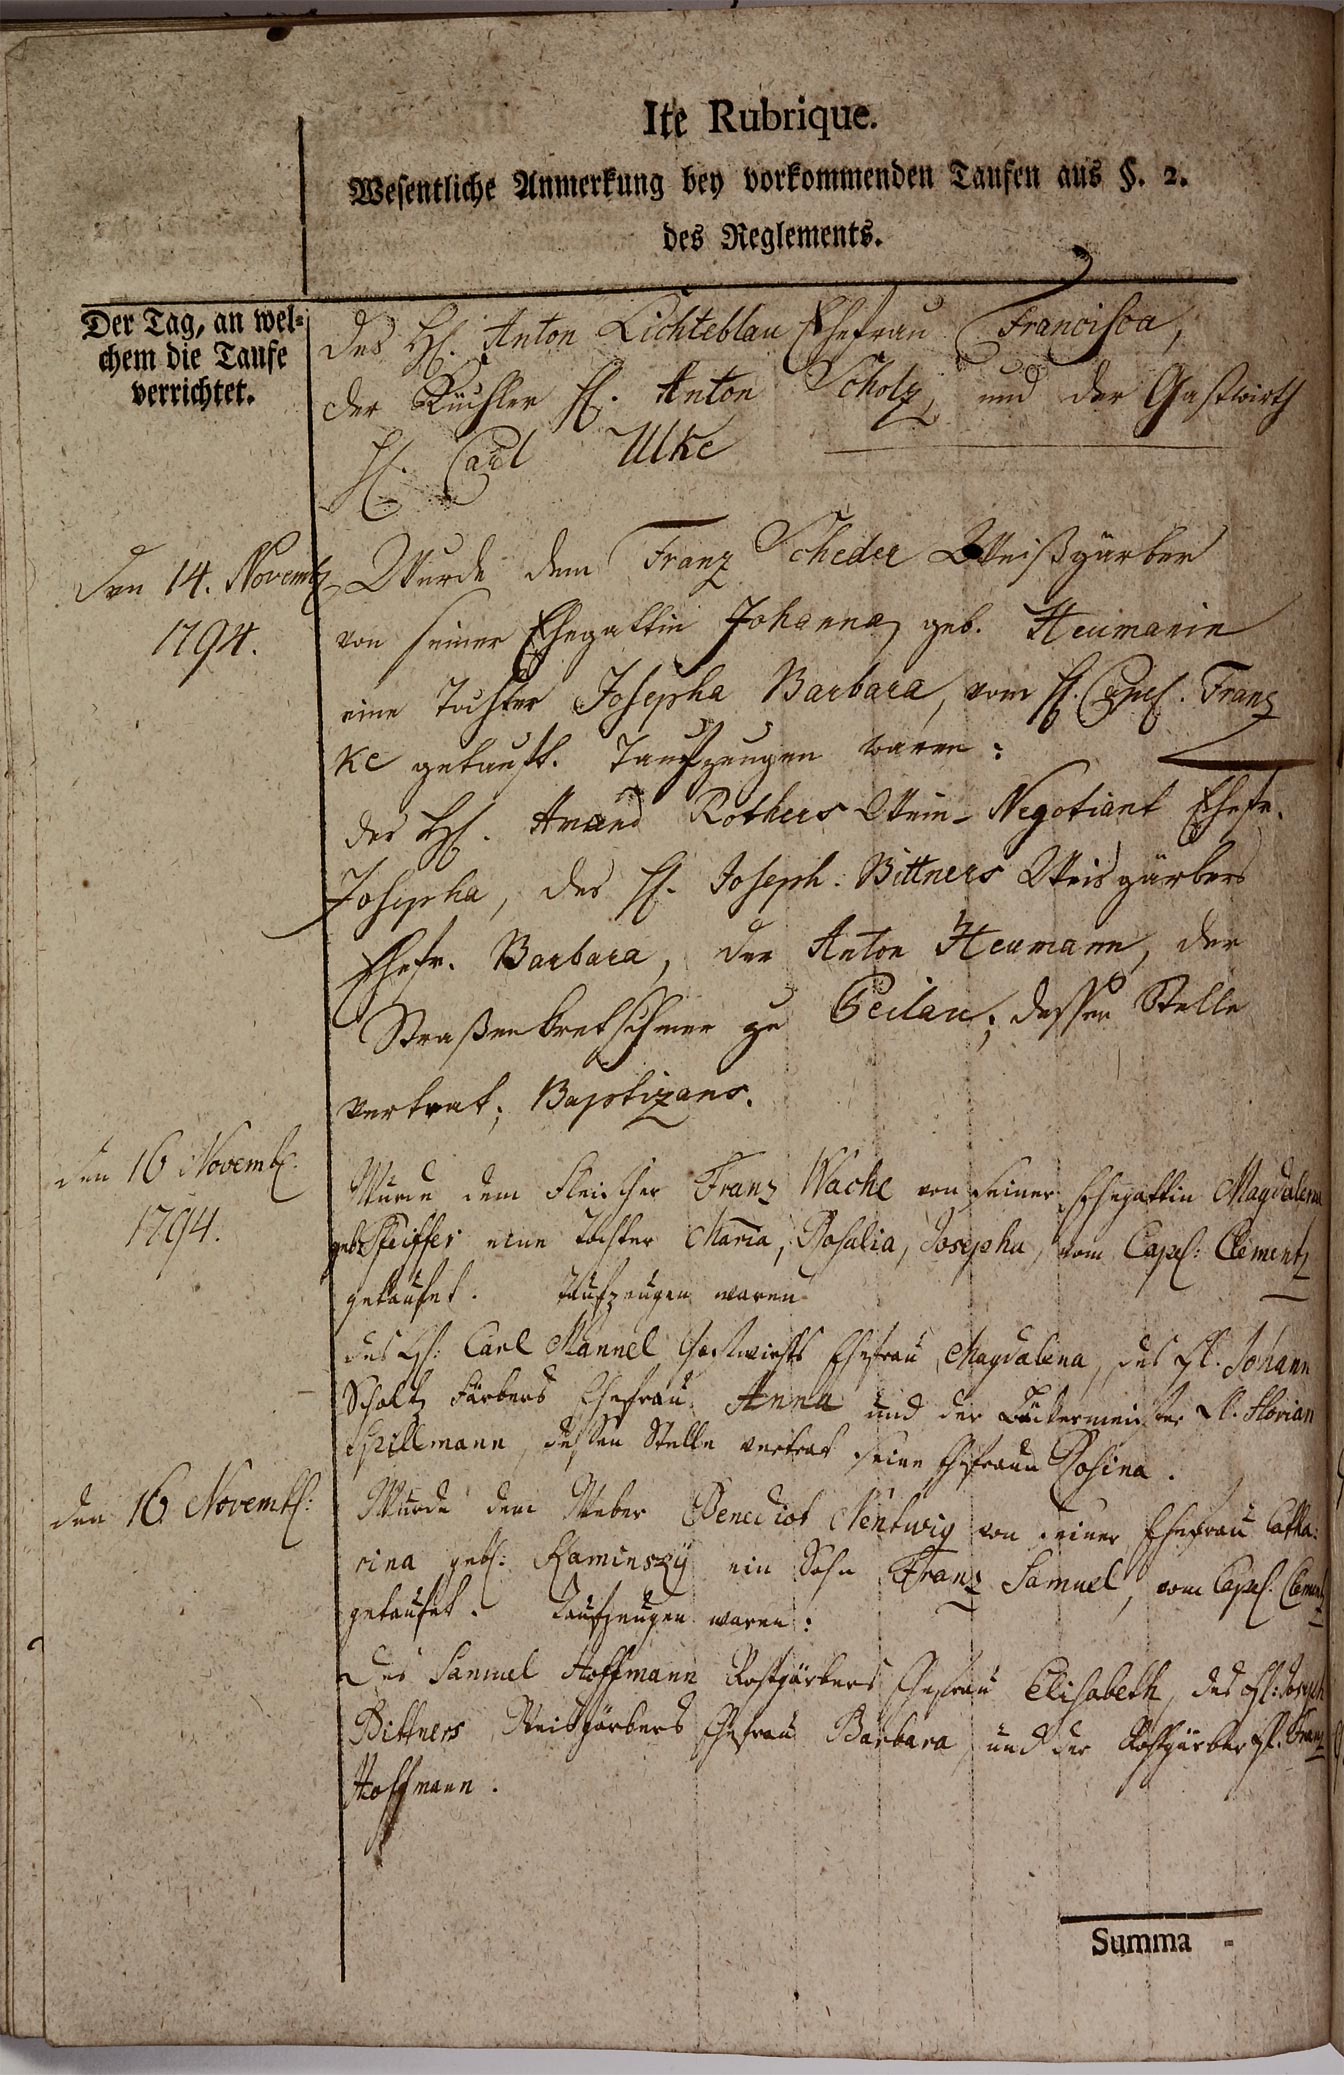 Ite Rubrique.
Wesentliche Anmerkung bey vorkommenden Taufen aus §. 2.
des Reglements.
Der Tag, an wel-
chem die Taufe
verrichtet.
des H. Anton Lichteblau Ehefrau Francisca,
der Züchler H. Anton Scholz, und der Gastwirth
H. Carl Ulke
Den 14. Novemb.
1794.
Wurde dem Franz Scheder Weißgärber
von seiner Ehegattin Johanna geb. Heumanin
eine Tochter Josepha Barbara, vom H. Capl. Franz
ke getauft. Taufzeugen waren:
des H. Amand Rothers Wein-Negotiant Ehefr.
Josepha, des H. Joseph Bittners Weisgärbers
Ehefr. Barbara, der Anton Heumann, der
Straßenkretschmer zu Peilau; dessen Stelle
vertrat; Baptizans.
den 16 Novemb.
1794.
Wurde dem Fleischer Franz Wache von seiner Ehegattin Magdalena
geb. Pfeiffer eine Tochter Maria, Rosalia, Josepha, vom Capl: Clementz
getaufet. Taufzeugen waren
des H: Carl Mannel Gastwirths Ehefrau Magdalena, des H. Johann
Scholtz Färbers Ehefrau Anna und der Bäckermeister H. Florian
Spillmann, dessen Stelle vertrat seine Ehefrau Rosina.
den 16 Novemb:
Wurde dem Weber Benedict Nentwig von seiner Ehefrau Catha:
rina geb: Kaminszÿ ein Sohn Franz Samuel, vom Capl. Clementz
getaufet. Taufzeugen waren:
Des Samuel Hoffmann Rothgärbers Ehefrau Elisabeth, des H: Joseph
Bittners Weisgärbers Ehefrau Barbara und der Rothgärber H. Franz
Hoffmann.
Summa -